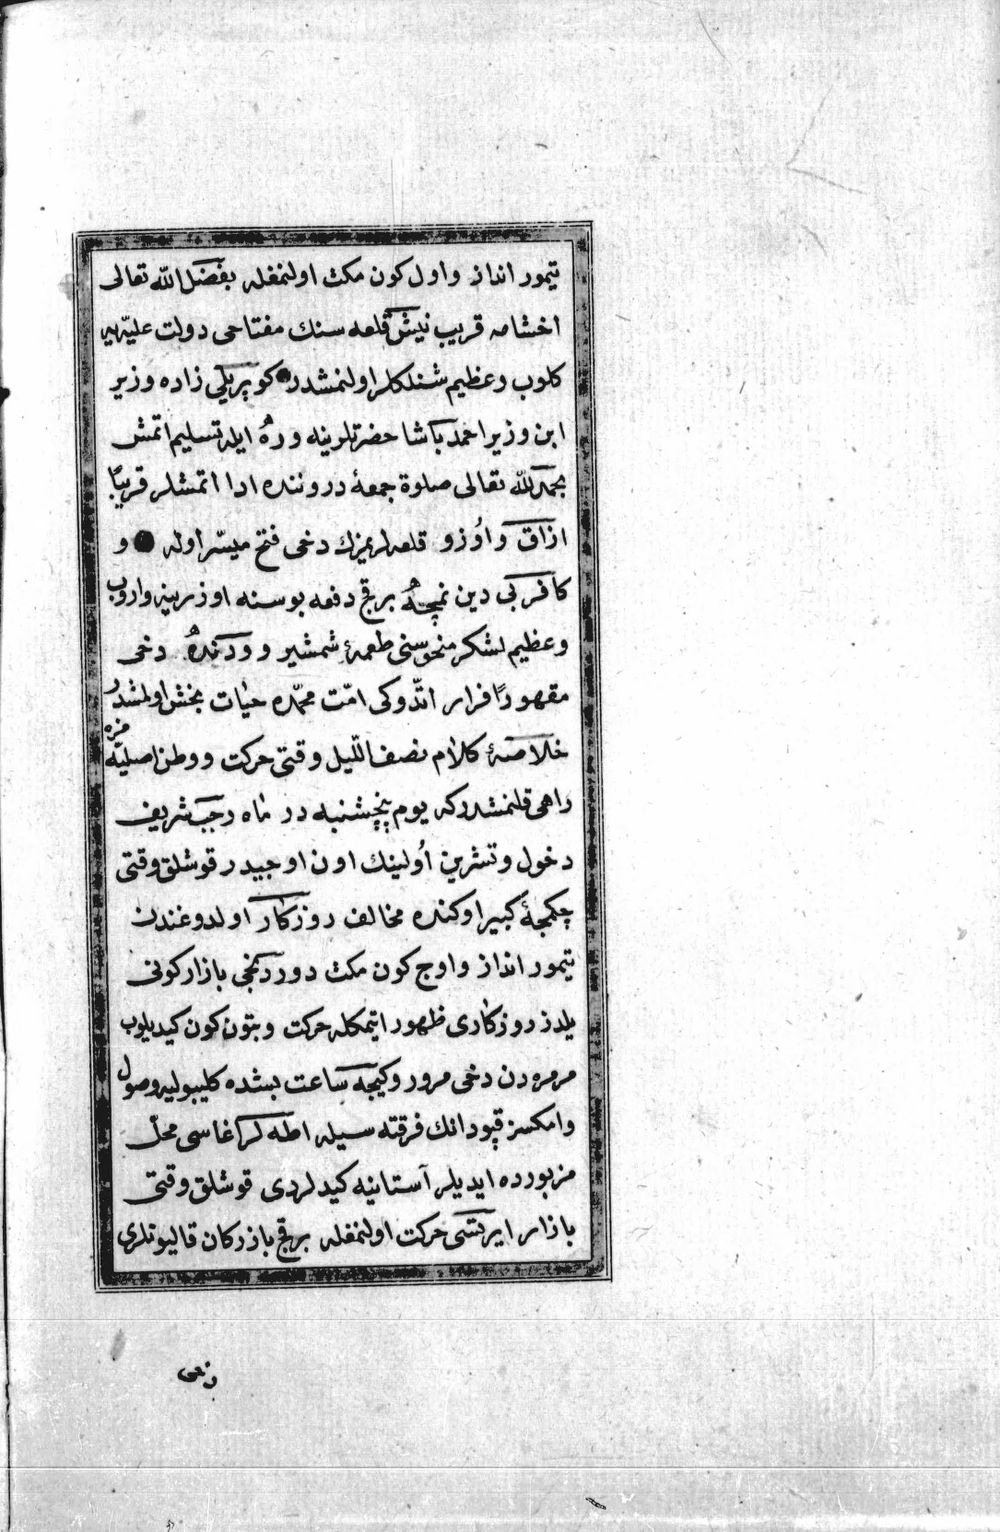 تیمور انداز و اول کون مکث اولنمغله بفضل الله تعالی
اخشامه قریب نیش قلعه سنك مفتاحی دولت علیّه یه
کلوب و عظیم شنلکلر اولنمشدر کوپریلی زاده وزیر
ابن وزیر احمد پاشا حضرتلرینه وره ایله تسلیم اتمش
بحمد الله تعالی صلوة جمعهٔ دروننده ادا اتمشلر قریبًا
ازاق و اوزو قلعه لریمزك دخی فتح میسّر اوله و
کافر بی دین نمچه برقچ دفعه بوسنه اوزرینه واروب
و عظیم لشکر منحوسنی طعمهٔ شمشیر و دخی
مقهورًا فرار اتدوکی امّت محمّده حیات بخش اولمشدر
خلاصهٔ کلام نصف اللّیل وقتی حرکت و وطن اصلیّه مزه
راهی قلنمشدر که یوم پنچشنبه در ماه رجب شریف
دخول و تشرین اولینك اون اوجیدر قوشلق وقتی
چکمجهٔ کبیر اوکنده مخالف روزکار اولدوغندن
تیمور انداز و اوج کون مکث دوردنجی بازار کونی
یلدز روزکاری ظهور ایتمکله حرکت و بتون کون کیدیلوب
مرمره دن دخی مرور و کیجه ساعت بشده کلیبولیه وصول
و امکسز قپودانك فرقته سیله اطه لر اغاسی محلّ
مزبورده ایدیلر آستانیه کیدلردی قوشلق وقتی
بازار ایرتسی حرکت اولنمغله برقچ بازرکان قالیونلری